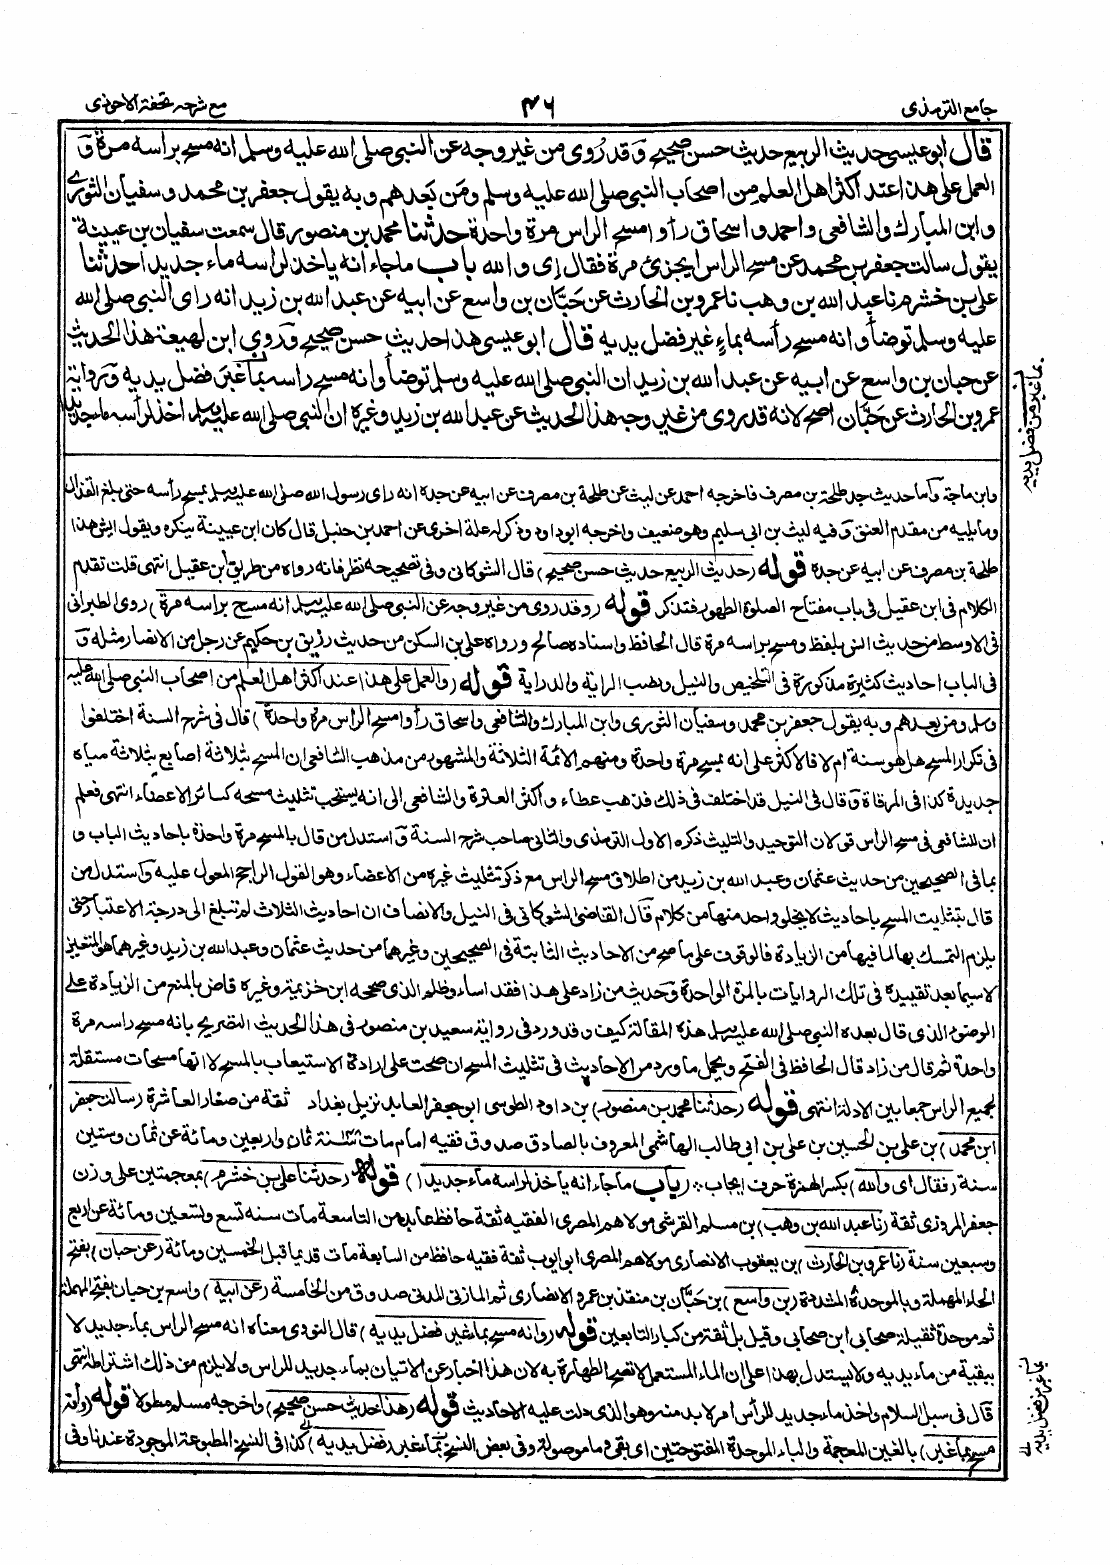 جامع الترمذي
٤٦
مع شرحه تحفة الاحوذي
قال ابو عيسى حديث الربيع حديث حسن صحيح وقد رُوى من غير وجه عن النبي صلى الله عليه وسلم انه مسح براسه مرة و
العمل على هذا عند اكثر اهل العلم من اصحاب النبي صلى الله عليه وسلم ومَن بَعدهم وبه يقول جعفر بن محمد وسفيان الثوري
وابن المبارك والشافعي واحمد واسحاق رأوا مسح الراس مرة واحدة حدثنا محمد بن منصور قال سمعت سفيان بن عيينة
يقول سالت جعفر بن محمد عن مسح الراس ايجزئ مرة فقال إى والله باب ماجاء انه ياخذ لراسه ماء جديدا حدثنا
على بن خشرم نا عبد الله بن وهب نا عمرو بن الحارث عن حَبَّان بن واسع عن ابيه عن عبد الله بن زيد انه راى النبي صلى الله
عليه وسلم توضأ وانه مسح رأسه بماءٍ غير فضل يديه قال ابو عيسى هذا حديث حسن صحيح وروى ابن لهيعة هذا الحديث
عن حبان بن واسع عن ابيه عن عبد الله بن زيد ان النبي صلى الله عليه وسلم توضأ وانه مسح راسه بما غبر فضل يديه ورواية
عمرو بن الحارث عن حَبَّان اصح لانه قد روى من غير وجه هذا الحديث عن عبد الله بن زيد وغيره ان النبي صلى الله عليه وسلم اخذ لرأسه ماء جديدا
بما غبر من فضل يديه
وابن ماجة وأما حديث جد طلحة بن مصرف فاخرجه احمد عن ليث عن طلحة بن مصرف عن ابيه عن جده انه راى رسول الله صلى الله عليه وسلم يمسح رأسه حتى بلغ القذال
وما يليه من مقدم العنق وفيه ليث بن ابى سليم وهو ضعيف واخرجه ابو داود وذكر له علة اخرى عن احمد بن حنبل قال كان ابن عيينة ينكره ويقول ايش هذا
طلحة بن مصرف عن ابيه عن جده قوله (حديث الربيع حديث حسن صحيح) قال الشوكانى وفى تصحيحه نظر فانه رواه من طريق ابن عقيل انتهى قلت تقدم
الكلام فى ابن عقيل فى باب مفتاح الصلوة الطهور فتذكر قوله (وقد روى من غير وجه عن النبي صلى الله عليه وسلم انه مسح براسه مرة) روى الطبرانى
فى الاوسط من حديث انس بلفظ ومسح براسه مرة قال الحافظ واسناده صالح ورواه على بن السكن من حديث رزيق بن حكيم عن رجل من الانصار مثله و
فى الباب احاديث كثيرة مذكورة فى التلخيص والنيل ونصب الراية والدراية قوله (والعمل على هذا عند اكثر اهل العلم من اصحاب النبي صلى الله عليه
وسلم ومن بعدهم وبه يقول جعفر بن محمد وسفيان الثورى وابن المبارك والشافعى واسحاق رأوا مسح الراس مرة واحدة) قال فى شرح السنة اختلفوا
فى تكرار المسح هل هو سنة ام لا فالاكثر على انه يمسح مرة واحدة ومنهم الائمة الثلاثة والمشهور من مذهب الشافعى ان المسح بثلاثة اصابع بثلاثة مياه
جديدة كذا فى المرقاة وقال فى النيل قد اختلف فى ذلك فذهب عطاء واكثر العترة والشافعى الى انه يستحب تثليث مسحه كسائر الاعضاء انتهى فعلم
ان للشافعى فى مسح الراس قولان التوحيد والتثليث ذكره الاول الترمذى والثانى صاحب شرح السنة واستدل من قال بالمسح مرة واحدة باحاديث الباب و
بما فى الصحيحين من حديث عثمان وعبد الله بن زيد من اطلاق مسح الراس مع ذكر تثليث غيره من الاعضاء وهو القول الراجح المعول عليه واستدل من
قال بتثليث المسح باحاديث لا يخلو واحد منها من كلام قال القاضى الشوكانى فى النيل والانصاف ان احاديث الثلاث لم تبلغ الى درجة الاعتبار حتى
يلزم التمسك بها لما فيها من الزيادة فالوقوف على ما صح من الاحاديث الثابتة فى الصحيحين وغيرهما من حديث عثمان وعبد الله بن زيد وغيرهما هو المتعين
لا سيما بعد تقييده فى تلك الروايات بالمرة الواحدة وحديث من زاد على هذا فقد اساء وظلم الذى صححه ابن خزيمة وغيره قاض بالمنع من الزيادة على
الوضوء الذى قال بعده النبي صلى الله عليه وسلم هذه المقالة كيف وقد ورد فى رواية سعيد بن منصور فى هذا الحديث التصريح بانه مسح راسه مرة
واحدة ثم قال من زاد قال الحافظ فى الفتح ويحمل ما ورد من الاحاديث فى تثليث المسح ان صحت على ارادة الاستيعاب بالمسح لا انها مسحات مستقلة
لجميع الراس جمعا بين الادلة انتهى قوله (حدثنا محمد بن منصور) بن داود الطوسى ابو جعفر العابد نزيل بغداد ثقة من صغار العاشرة (سالت جعفر
ابن محمد) بن على بن الحسين بن على بن ابى طالب الهاشمى المعروف بالصادق صدوق فقيه امام مات سنة ثمان واربعين ومائة عن ثمان وستين
سنة (فقال اى والله) بكسر الهمزة حرف ايجاب (باب ماجاء انه ياخذ لراسه ماء جديدا) قوله (حدثنا على بن خشرم) بمعجمتين على وزن
جعفر المروزى ثقة (نا عبد الله بن وهب) بن مسلم القرشى مولاهم المصرى الفقيه ثقة حافظ عابد من التاسعة مات سنة تسع وتسعين ومائة عن اربع
وسبعين سنة (نا عمرو بن الحارث) بن يعقوب الانصارى مولاهم المصرى ابو ايوب ثقة فقيه حافظ من السابعة مات قديما قبل الخمسين ومائة (عن حبان) بفتح
الحاء المهملة وبالموحدة المشددة (بن واسع) بن حَبَّان بن منقذ بن عمرو الانصارى ثم المازنى المدنى صدوق من الخامسة (عن ابيه) واسع بن حبان بفتح المهملة
ثم موحدة ثقيلة صحابى ابن صحابى وقيل بل ثقة من كبار التابعين قوله (وانه مسح بماء غير فضل يديه) قال النووى معناه انه مسح الراس بماء جديد لا
ببقية من ماء يديه ولا يستدل بهذا على ان الماء المستعمل لا تصح الطهارة به لان هذا اخبار عن الاتيان بماء جديد للراس ولا يلزم من ذلك اشتراطه انتهى
قال فى سبل السلام واخذ ماء جديد للرأس امر لا بد منه وهو الذى دلت عليه الاحاديث قوله (هذا حديث حسن صحيح) واخرجه مسلم مطولا قوله (وانه
مسح بما غبر) بالغين المعجمة والباء الموحدة المفتوحتين اى بقى وما موصولة وفى بعض النسخ بماء غير (فضل يديه) كذا فى النسخ المطبوعة الموجودة عندنا وفى